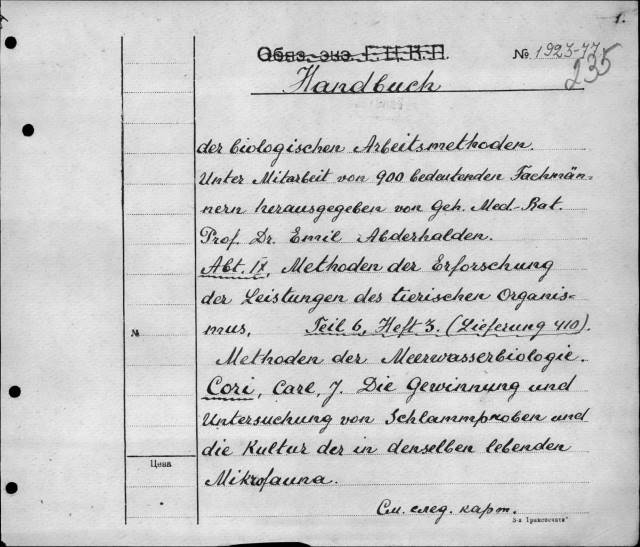 1.
Обяз. экз. Г.Ц.К.П.
№ 1923-77
235
Handbuch
der biologischen Arbeitsmethoden.
Unter Mitarbeit von 900 bedeutenden Fachmän-
nern herausgegeben von Geh. Med.-Rat.
Prof. Dr. Emil Abderhalden.
Abt. IX, Methoden der Erforschung
der Leistungen des tierischen Organis-
mus, Teil 6, Heft 3. (Lieferung 410).
Methoden der Meerwasserbiologie.
Cori, Carl, J. Die Gewinnung und
Untersuchung von Schlammproben und
die Kultur der in denselben lebenden
Mikrofauna.
См. след. карт.
№
Цена
3-я Транспечати